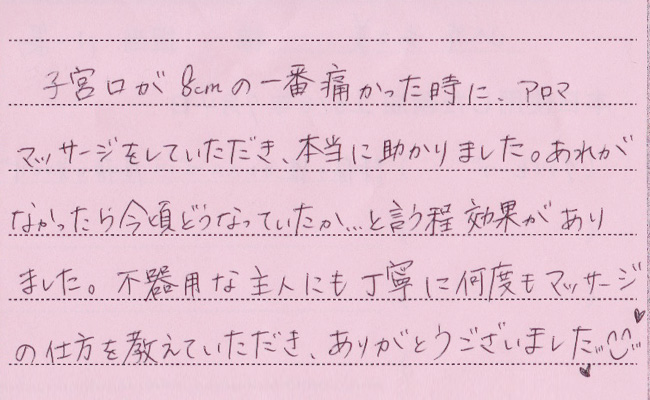 子宮口が8cmの一番痛かった時に、アロマ
マッサージをしていただき、本当に助かりました。あれが
なかったら今頃どうなっていたか…と言う程効果があり
ました。不器用な主人にも丁寧に何度もマッサージ
の仕方を教えていただき、ありがとうございました…